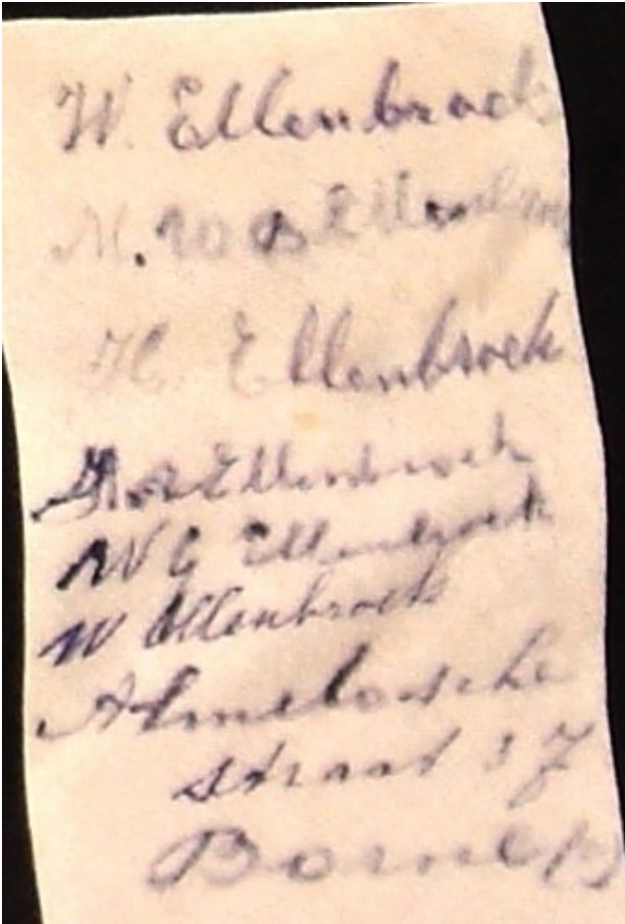 W. Ellenbroek
M. W B Ellenbroek
H. Ellenbroek
Ellenbroek
W G Ellenbroek
W Ellenbroek
Almeloosche
straat 37
Borne